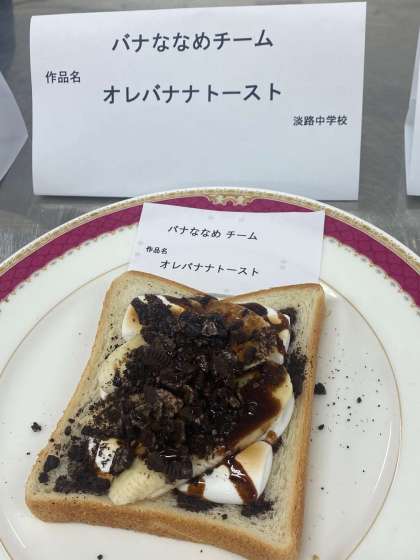 バナななめチーム
作品名
オレバナナトースト
淡路中学校
バナななめ チーム
作品名
オレバナナトースト